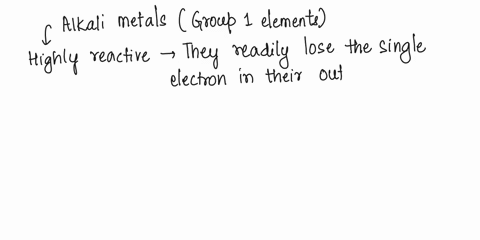 Alkali metals (Group 1 elements)
Highly reactive → They readily lose the single
electron in their out